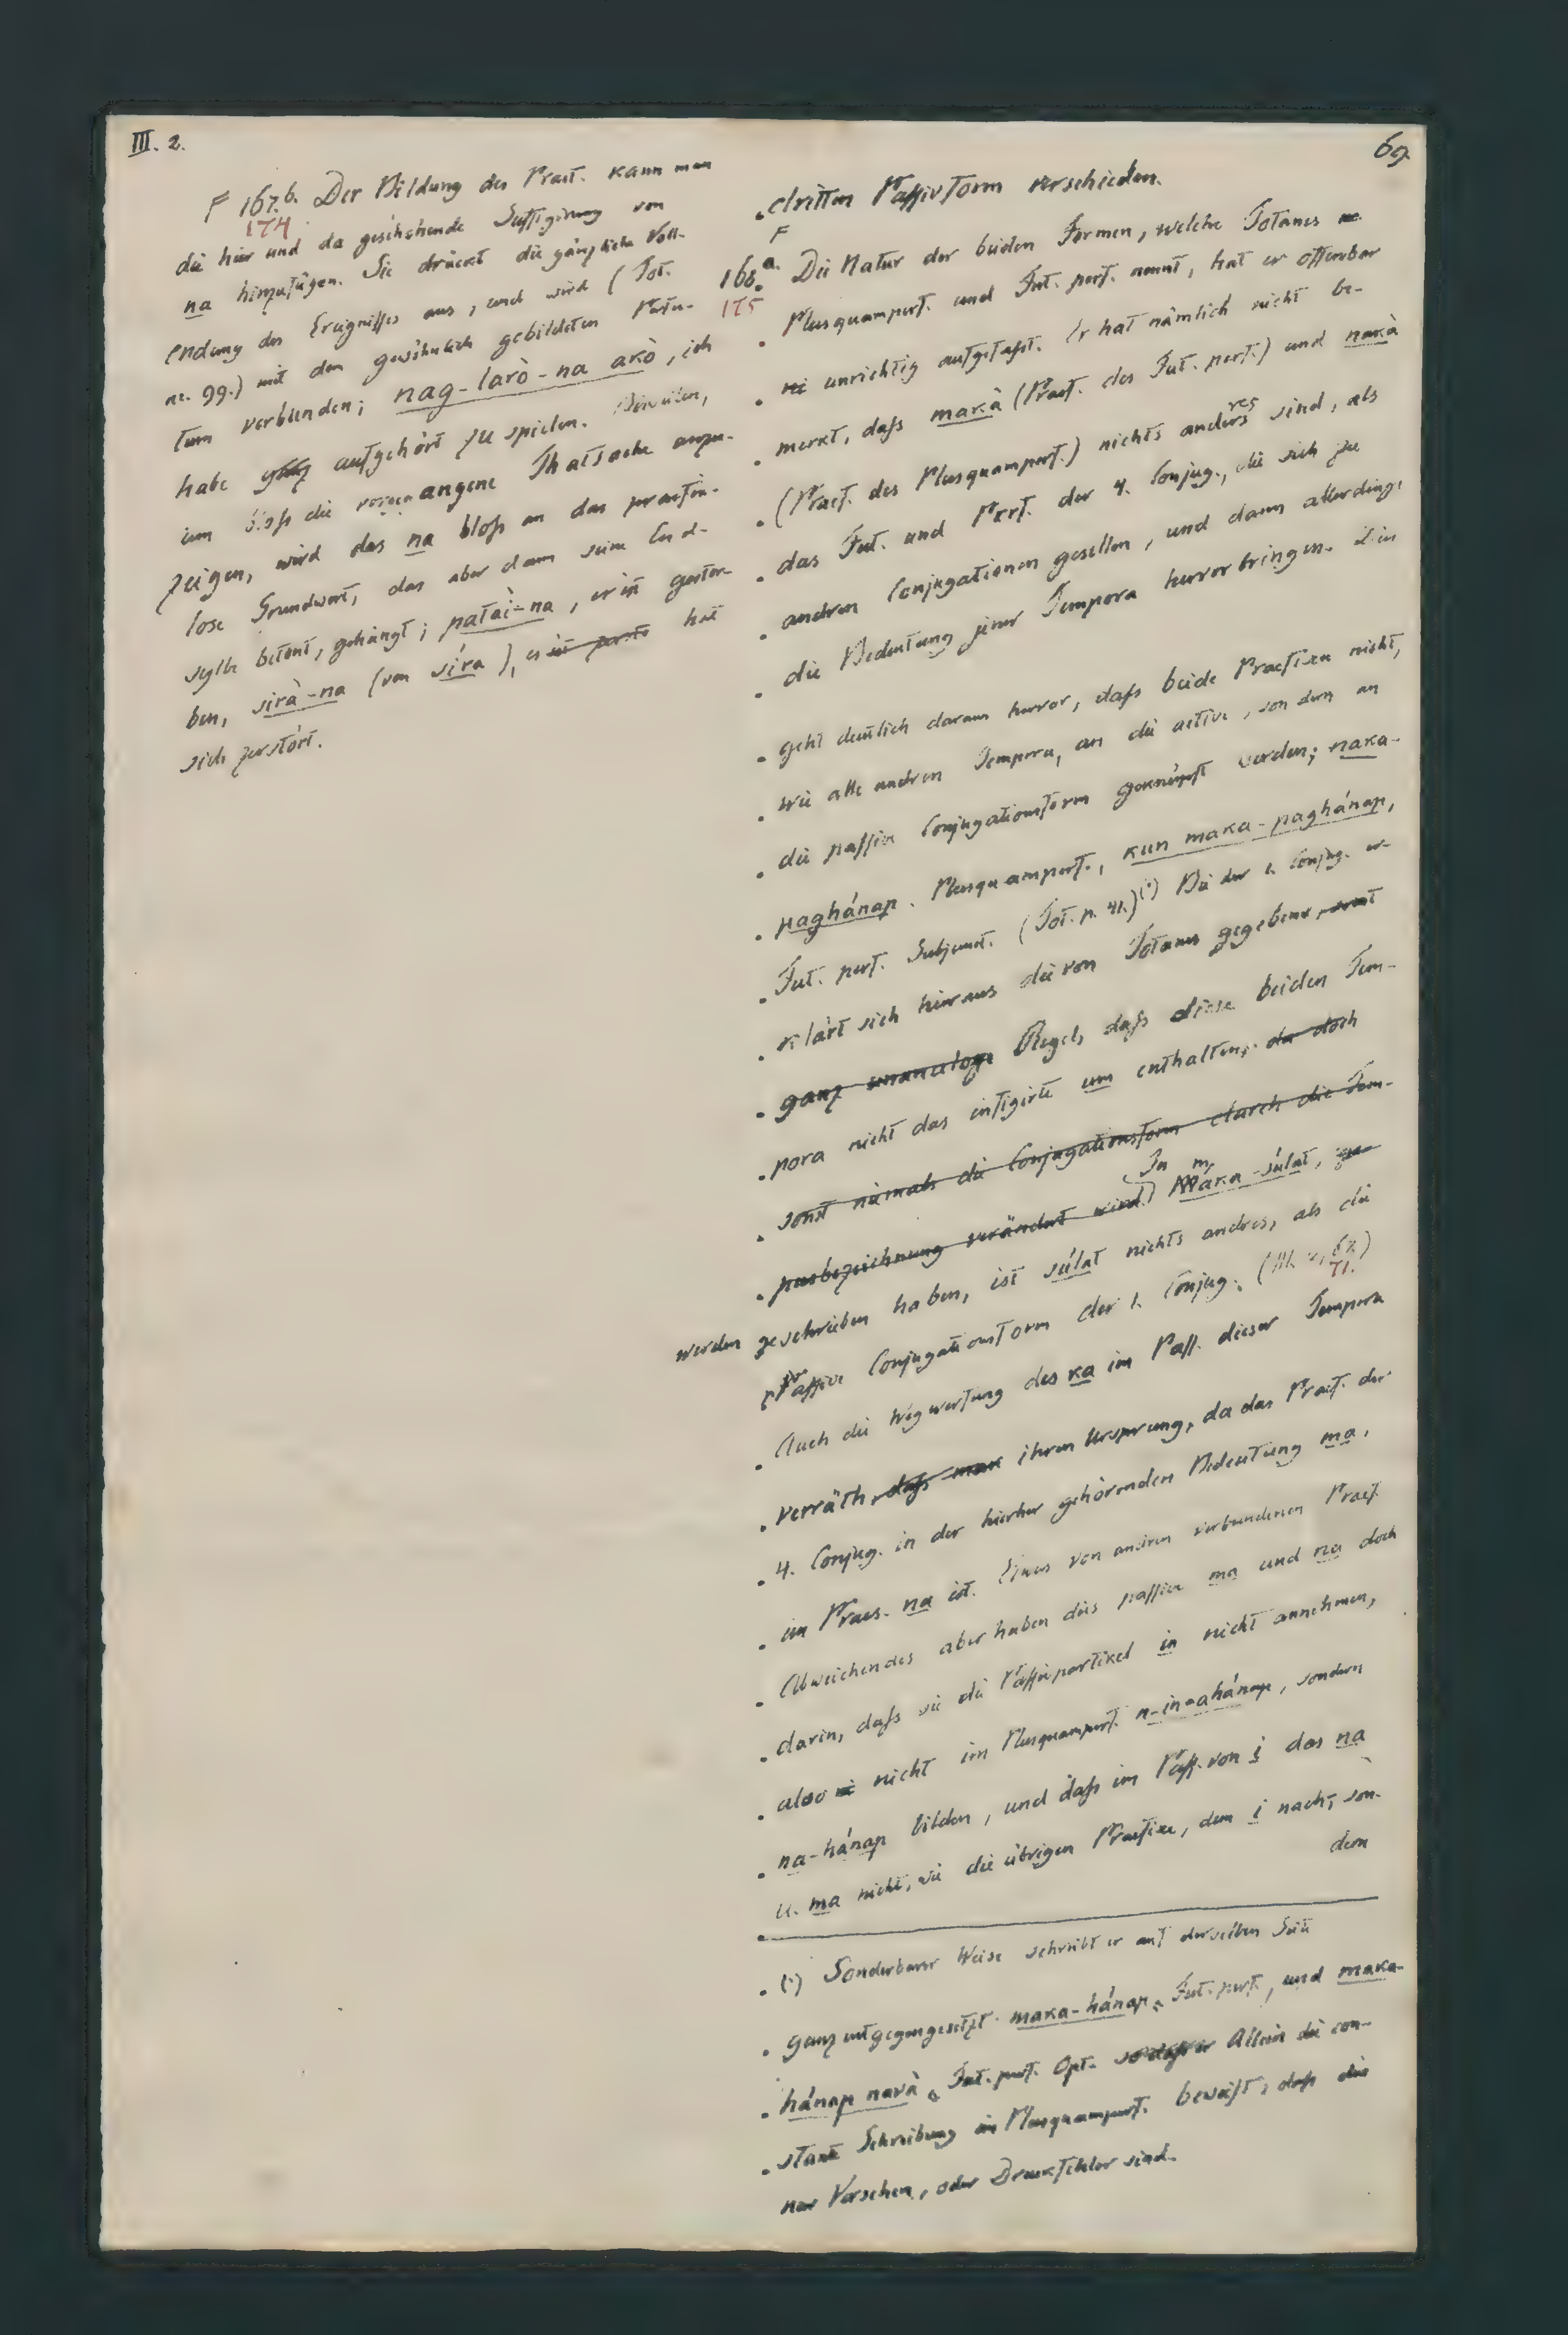 III. 2.
69.
F 167.b. Der Bildung des Praet. kann man
174
die hier und da geschehende Suffigirung von
na hinzufügen. Sie drückt die gänzliche Voll-
endung des Ereignisses aus, und wird (Tot.
nr. 99.) mit dem gewöhnlich gebildeten Futu-
rum verbunden; nag-larò-na akò, ich
habe aufgehört zu spielen. Bisweilen,
um bloſs die vergangene Thatsache anzu-
zeigen, wird das na bloſs an das praefix-
lose Grundwort, das aber dann seine End-
sylbe betont, gehängt; patài-na, er ist gestor-
ben, sirà-na (von síra), es ist hat
sich zerstört.
dritten Paſsivform verschieden.
F
168.a. Die Natur der beiden Formen, welche Totanes
175
Plusquamperf. und Fut. perf. nennt, hat er offenbar
unrichtig aufgefaſst. Er hat nämlich nicht be-
merkt, daſs makà (Praet. des Fut. perf.) und nakà
(Praef. des Plusquamperf.) nichts anderes sind, als
das Fut. und Perf. der 4. Conjug., die sich zu
andren Conjugationen gesellen, und dann allerdings
die Bedeutung jener Tempora hervorbringen. Dies
geht deutlich daraus hervor, daſs beide Praefixa nicht,
wie alle andren Tempora, an die active, sondern an
die paſsive Conjugationsform geknüpft werden; naka-
paghánap. Plusquamperf., kun maka-paghánap,
Fut. perf. Subjunct. (Tot. p. 41.)(*) Bei der 1. Conjug. er-
klärt sich hieraus die von Totanes gegebene, sonst
ganz unanaloge Regel, daſs diese beiden Tem-
pora nicht das infigirte um enthalten, da doch
sonst niemals die Conjugationsform durch die Tem-
pusbezeichnung verändert wird. In máka-súlat,
werden geschrieben haben, ist súlat nichts andres, als die
Paſsive Conjugationsform der 1. Conjug.
71.
Auch die Wegwerfung des ka im Paſs. dieser Tempora
verräth, daſs man ihren Ursprung, da das Praet. der
4. Conjug. in der hierher gehörenden Bedeutung ma,
im Praes. na ist. Etwas von andren verbundenen Praef.
Abweichendes aber haben dies paſsive ma und na doch
darin, daſs sie die Paſsivpartikel in nicht annehmen,
also nicht im Plusquamperf. n-in-ahánap, sondern
na-hánap bilden, und daſs im Paſs. von i das na
u. ma nicht, wie die übrigen Praefixe, dem i nach, son-
dern
(*) Sonderbarer Weise schreibt er auf derselben Seite
ganz entgegengesetzt maka-hánap, Fut. perf., und maka-
hánap navà, Fut. perf. Opt. Allein die con-
stante Schreibung im Plusquamperf. beweist, daſs dies
nur Versehen, oder Druckfehler sind.